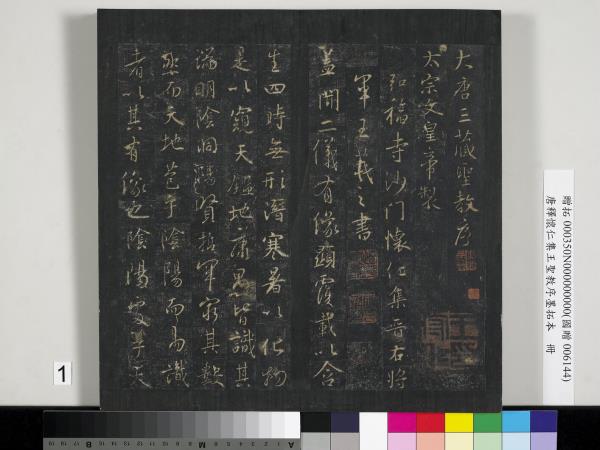 大唐三藏聖教序
太宗文皇帝製
弘福寺沙門懷仁集晉右將
軍王羲之書
蓋聞二儀有像顯覆載以含
生四時無形潛寒暑以化物
是以窺天鑑地庸愚皆識其
端明陰洞陽賢哲罕窮其數
然而天地苞乎陰陽而易識
者以其有像也陰陽處乎天
贈拓 000350N000000000(國贈 006144)
唐釋懷仁集王聖教序墨拓本 冊
1